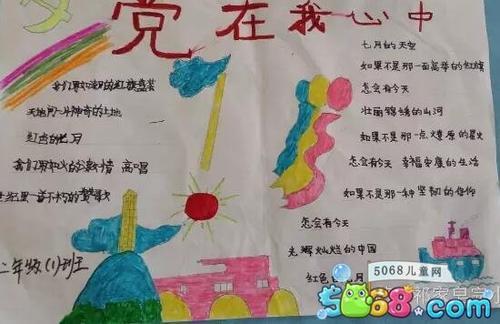 党在我心中
我们用如火的红旗盛装
天地间一片神奇的土地
红色的七月
我们用如火的激情 高唱
世纪里一首不朽的赞歌
二年级(1)班
七月的天空
如果不是那一面高举的红旗
怎会有今天
壮丽锦绣的山河
如果不是那一点燎原的星火
怎会有今天 幸福安康的生活
如果不是那一种坚韧的信仰
怎会有今天
光辉灿烂的中国
红色 月
5068儿童网
5068.com